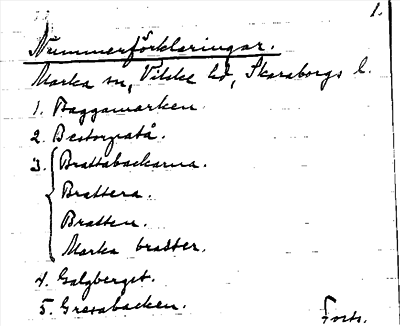 1.
Nummerförklaringar.
Marka sn, Vilske hd, Skaraborgs l.
1. Baggamarken.
2. Bestorpaå.
3. Brattabackarna.
Brattera.
Bratten.
Marka bratter.
4. Galgberget.
5. Gretabacken.
Forts.